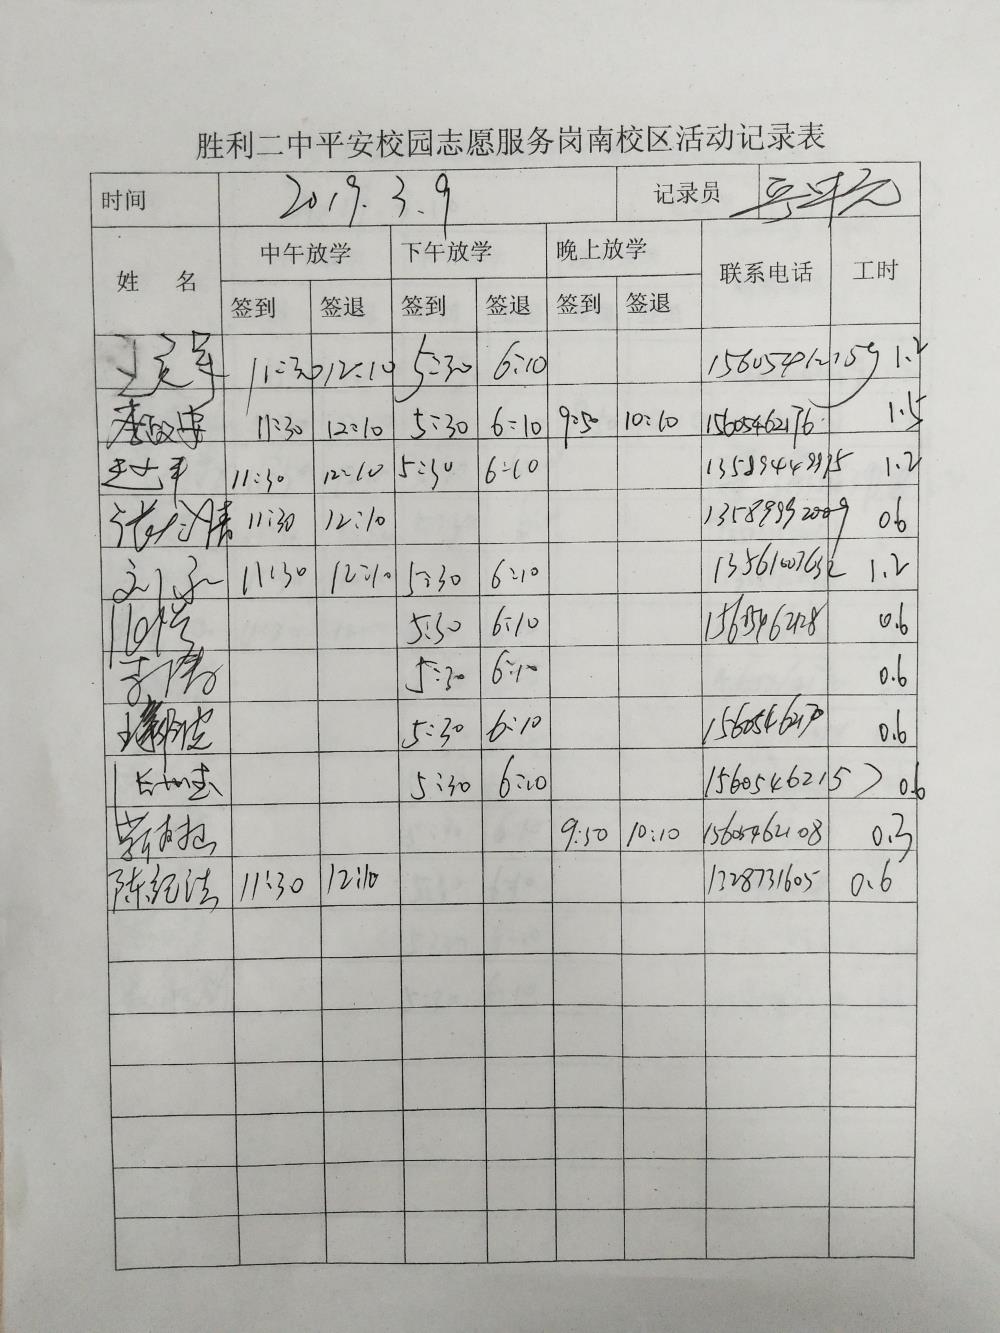 胜利二中平安校园志愿服务岗南校区活动记录表
时间 2019.3.9 记录员
姓 名 中午放学 下午放学 晚上放学 联系电话 工时
签到 签退 签到 签退 签到 签退
11:30 12:10 5:30 6:10 1.2
11:30 12:10 5:30 6:10 9:50 10:10 15605462176 1.5
11:30 12:10 5:30 6:10 1.2
11:30 12:10 13589992009 0.6
11:30 12:10 5:30 6:10 13561007632 1.2
5:30 6:10 0.6
5:30 6:10 0.6
5:30 6:10 0.6
5:30 6:10 0.6
9:50 10:10 15605462108 0.3
陈纪法 11:30 12:10 1328731605 0.6